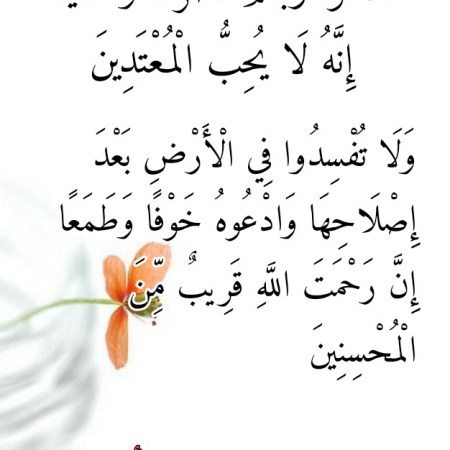 إِنَّهُ لَا يُحِبُّ الْمُعْتَدِينَ
وَلَا تُفْسِدُوا فِي الْأَرْضِ بَعْدَ
إِصْلَاحِهَا وَادْعُوهُ خَوْفًا وَطَمَعًا
إِنَّ رَحْمَتَ اللَّهِ قَرِيبٌ مِّنَ
الْمُحْسِنِينَ